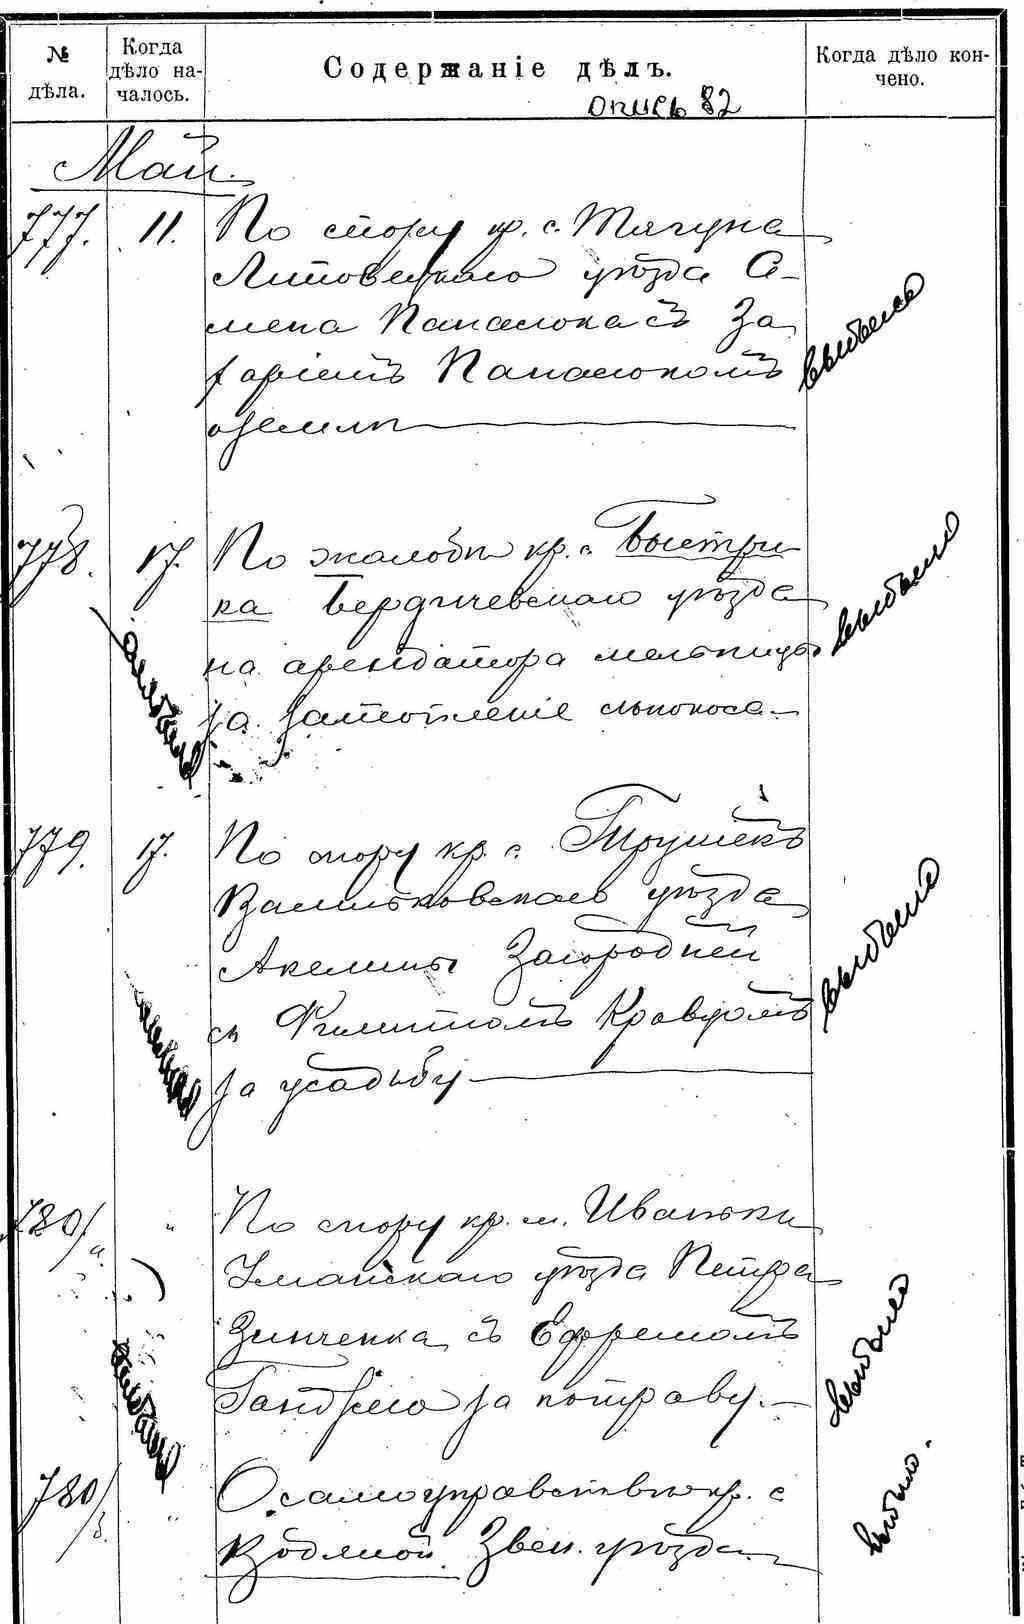 № дѣла.
Когда дѣло началось.
Содержаніе дѣлъ.
Когда дѣло кончено.
опись 82
Май.
777. 11. По спору кр. с. Тягуна
Липовецкаго уѣзда Се-
мена Панасюка съ За
харіемъ Панасюкомъ
о землѣ
выбыло
778. 17. По жалобѣ кр. с. Быстри
ка Бердичевскаго уѣзда
на арендатора мельницы
за затопленіе сѣнокоса
выбыло
779. 17. По спору кр. с. Трушекъ
Васильковскаго уѣзда
Акелины Загородней
съ Филиппомъ Кравцомъ
за усадьбу
выбыло
780/а. " По спору кр. м. Иваньки
Уманскаго уѣзда Петра
Зинченка съ Ефремомъ
за потраву.
выбыло
780/б. " О самоуправствѣ кр. с
Водяной Звен. уѣзда
выбыло.